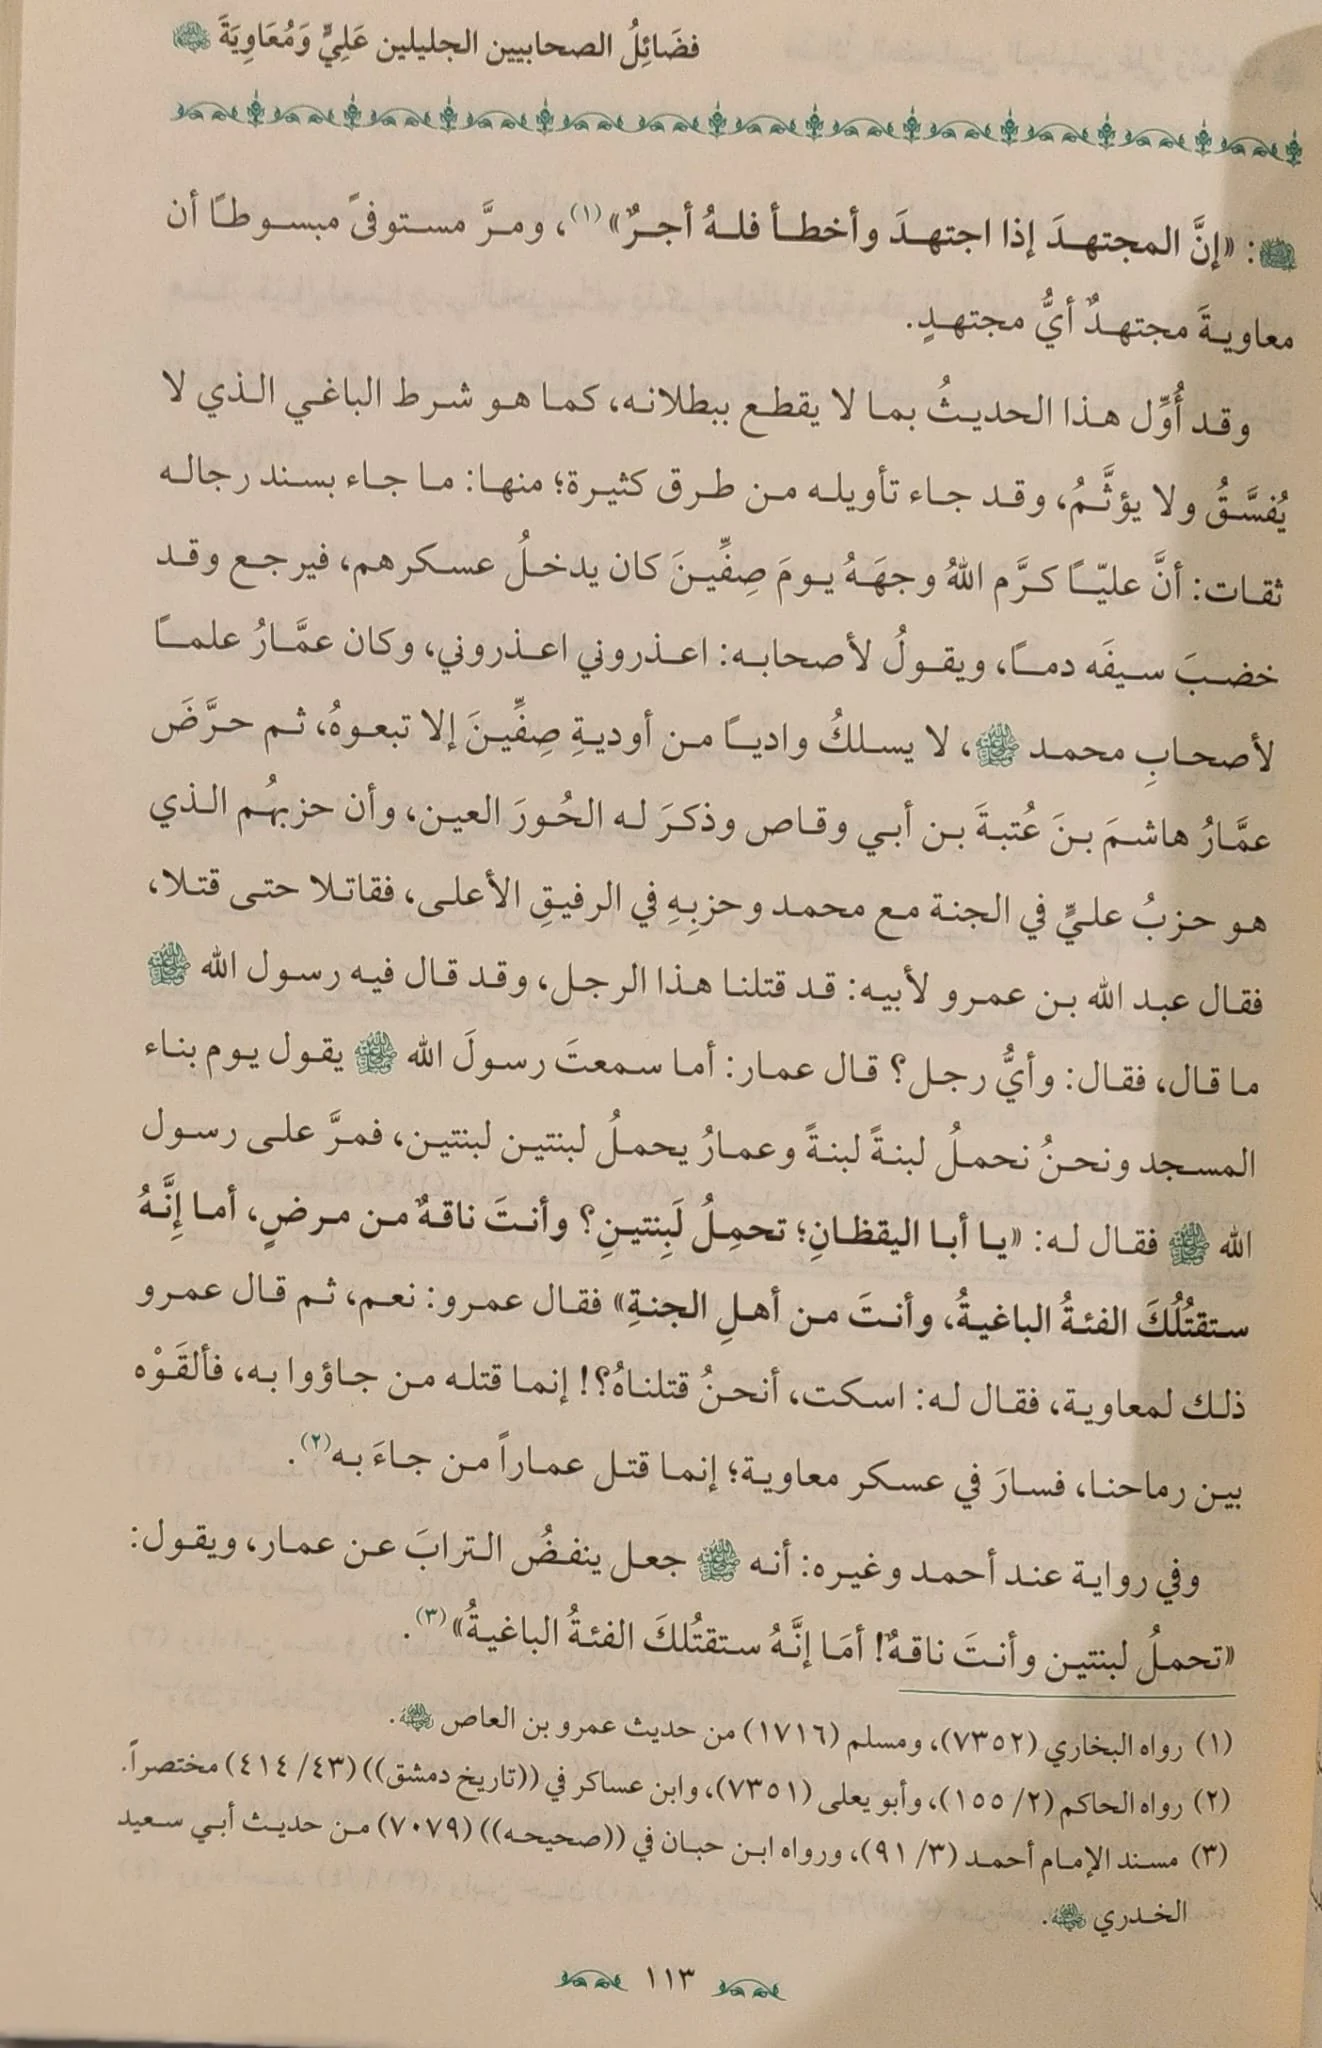 فضَائِلُ الصحابيين الجليلين عَلِيٍّ وَمُعَاوِيَةَ ﷺ
ﷺ: «إنَّ المجتهدَ إذا اجتهدَ وأخطأ فلهُ أجرٌ»(١)، ومرَّ مستوفىً مبسوطًا أن
معاويةَ مجتهدٌ أيُّ مجتهدٍ.
وقد أُوِّل هذا الحديثُ بما لا يقطع ببطلانه، كما هو شرط الباغي الذي لا
يُفسَّقُ ولا يؤثَّمُ، وقد جاء تأويله من طرق كثيرة؛ منها: ما جاء بسند رجاله
ثقات: أنَّ عليّاً كرَّم اللهُ وجهَهُ يومَ صِفِّينَ كان يدخلُ عسكرهم، فيرجع وقد
خضبَ سيفَه دماً، ويقولُ لأصحابه: اعذروني اعذروني، وكان عمَّارُ علماً
لأصحابِ محمد ﷺ، لا يسلكُ وادياً من أوديةِ صِفِّينَ إلا تبعوهُ، ثم حرَّضَ
عمَّارُ هاشمَ بنَ عُتبةَ بن أبي وقاص وذكرَ له الحُورَ العين، وأن حزبهُم الذي
هو حزبُ عليٍّ في الجنة مع محمد وحزبِهِ في الرفيقِ الأعلى، فقاتلا حتى قتلا،
فقال عبد الله بن عمرو لأبيه: قد قتلنا هذا الرجل، وقد قال فيه رسول الله ﷺ
ما قال، فقال: وأيُّ رجل؟ قال عمار: أما سمعتَ رسولَ الله ﷺ يقول يوم بناء
المسجد ونحنُ نحملُ لبنةً لبنةً وعمارُ يحملُ لبنتين لبنتين، فمرَّ على رسول
الله ﷺ فقال له: «يا أبا اليقظانِ؛ تحمِلُ لَبِنتينِ؟ وأنتَ ناقهٌ من مرضٍ، أما إِنَّهُ
ستقتُلُكَ الفئةُ الباغيةُ، وأنتَ من أهلِ الجنةِ» فقال عمرو: نعم، ثم قال عمرو
ذلك لمعاوية، فقال له: اسكت، أنحنُ قتلناهُ؟! إنما قتله من جاؤوا به، فألقَوْه
بين رماحنا، فسارَ في عسكر معاوية؛ إنما قتل عماراً من جاءَ به(٢).
وفي رواية عند أحمد وغيره: أنه ﷺ جعل ينفضُ الترابَ عن عمار، ويقول:
«تحملُ لبنتين وأنتَ ناقهٌ! أمَا إنَّهُ ستقتُلكَ الفئةُ الباغيةُ»(٣).
(١) رواه البخاري (٧٣٥٢)، ومسلم (١٧١٦) من حديث عمرو بن العاص رضي الله عنه.
(٢) رواه الحاكم (٢/ ١٥٥)، وأبو يعلى (٧٣٥١)، وابن عساكر في ((تاريخ دمشق)) (٤٣/ ٤١٤) مختصراً.
(٣) مسند الإمام أحمد (٣/ ٩١)، ورواه ابن حبان في ((صحيحه)) (٧٠٧٩) من حديث أبي سعيد
الخدري رضي الله عنه.
١١٣